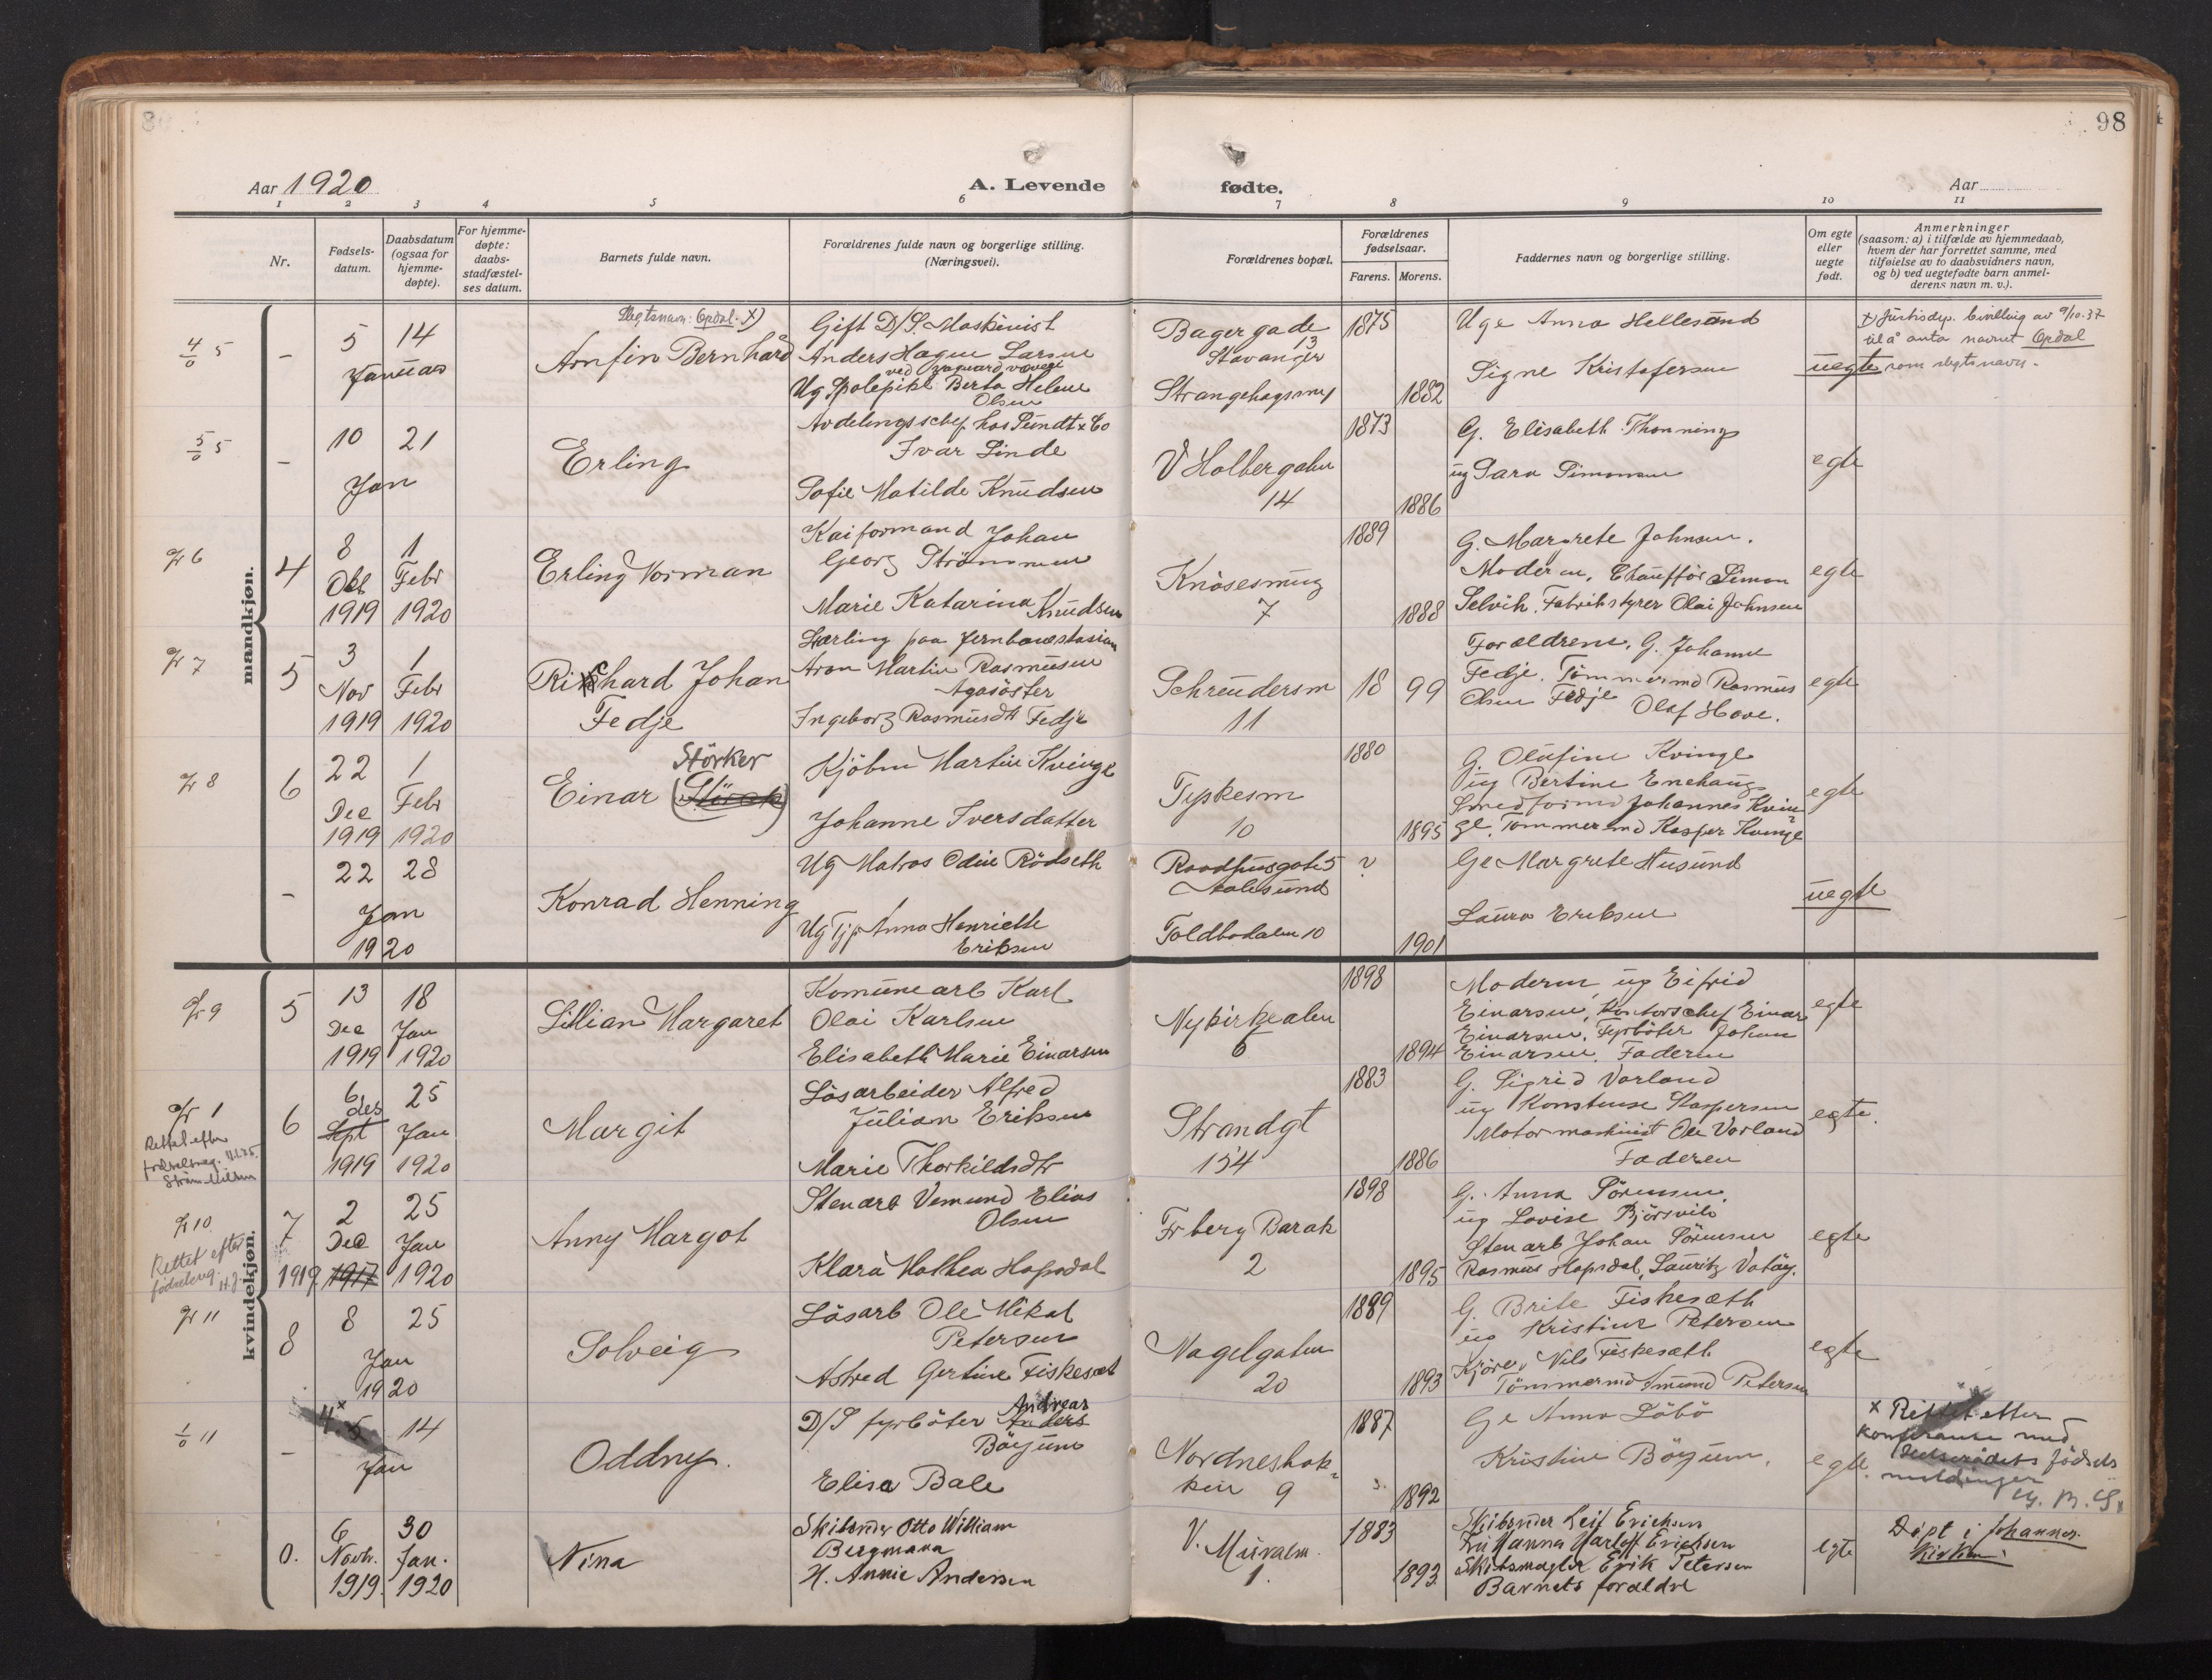 98
Aar 1920
A. Levende fødte.
Aar
1 2 3 4 5 6 7 8 9 10 11
Nr.
Fødsels-
datum.
Daabsdatum
(ogsaa for
hjemme-
døpte).
For hjemme-
døpte:
daabs-
stadfæstel-
ses datum.
Barnets fulde navn.
Forældrenes fulde navn og borgerlige stilling.
(Næringsvei).
Forældrenes bopæl.
Forældrenes
fødselsaar.
Farens. Morens.
Faddernes navn og borgerlige stilling.
Om egte
eller
uegte
født.
Anmerkninger
(saasom: a) i tilfælde av hjemmedaab,
hvem der har forrettet samme, med
tilføielse av to daabsvidners navn,
og b) ved uegtefødte barn anmel-
derens navn m. v.).
mandkjøn.
4/0 5
-
5 14
Januar
Slegtsnavn: Opdal. x)
Arnfin Bernhard
Gift D/S. Maskinist
Anders Hagen Larsen
Berta Helene
Olsen
Bagergade
13
Stavanger
Strangehagsmug
1875
1882
Uge Anna Hellesund
Signe Kristofersen
uegte
x) Justisdep. bevilling av 9/10.37
til å anta navnet Opdal
som slegtsnavn.
5/0 5
-
10 21
Jan
Erling
Avdelingschef hos Sundt & Co
Ivar Linde
Sofie Matilde Knudsen
V Holbergalm
14
1873
1886
G. Elisabeth Thonning
ug Sara Simonsen
egte
6
4
8 1
Okt Febr
1919 1920
Erling Norman
Kaiformand Johan
Georg Strömmen
Marie Katarina Knudsen
Knösesmug
7
1889
1888
G. Margrete Johnsen.
Moderen, Chaufför Simon
Selvik. Fabrikstyrer Olai Johnsen
egte
7
5
3 1
Nov Febr
1919 1920
Richard Johan
Fedje
Lærling paa Jernbanestasion
Aron Martin Rasmusen
Agasöster
Ingeborg Rasmusdtr Fedje
Schreudersm
11
18 99
Forældrene, G. Johanne
Fedje. Tømmermd Rasmus
Olsen Fedje Olaf Hove.
egte
8
6
22 1
Dec Febr
1919 1920
Störker
Einar
Kjöbm Martin Kvinge
Johanne Iversdatter
Tyskesm
10
1880
1895
G. Olafine Kvinge
ug Bertine Enehaug
Smedformd Johannes Kvin
ge. Tømmermd Kasper Kvinge
egte
-
22 28
Jan
1920
Konrad Henning
Ug Matros Odin Rödseth
Ug Tjp Anna Henriette
Eriksen
Raadhusgate 5
Aalesund
Toldbodalm 10
?
1901
Ge Margrete Husund
Laura Eriksen
uegte
kvindekjøn.
9
5
13 18
Dec Jan
1919 1920
Lillian Margaret
Komunearb Karl
Olai Karlsen
Elisabeth Marie Einarsen
Nykirkealm
6
1898
1894
Moderen, ug Eifrid
Einarsen, Kontorschef Einar
Einarsen. Fyrböter Johan
Einarsen. Faderen
egte
1
Rettet efter
6
6 25
des
Sept Jan
1919 1920
Margit
Lösarbeider Alfred
Julian Eriksen
Marie Thorkildsdtr
Strandgt
154
1883
1886
G. Sigrid Vorland
ug Konstanse Kaspersen
Motormaskinist Ole Vorland
Faderen
egte.
10
Rettet efter
7
2 25
Dec Jan
1919 1917 1920
Anny Margot
Stenarb Vemund Elias
Olsen
Klara Mathea Hopsdal
Fr berg Barak
2
1898
1895
G. Anna Sörensen,
ug Lovise Bjørsvik
Stenarb Johan Sörensen
Rasmus Hopsdal, Lauritz Vatöy.
egte
11
8
8 25
Jan
1920
Solveig
Lösarb Ole Mikal
Petersen
Astrid Gertine Fiskesæt
Nagelgaten
20
1889
1893
G. Brite Fiskesæth
ug Kristine Petersen
Kjörer Nils Fiskesæth
Tömmermd Petersen
egte
1/0 11
-
4x 14
Jan
Oddny.
Andreas
D/S fyrböter Anders
Böyum
Elise Bale
Nordneshak-
ken 9
1887
1892
Ge Anna Löbö
Kristine Böyum.
egte
x Rettet efter
konferanse med
Helserådets födsels
meldinger
0.
6 30
Novb. Jan.
1919. 1920
Nina
Skibsreder Otto William
Bergmann
H. Annie Andersen
V. Muralm.
1.
1883
1893
Skibsreder Leif Erichsen
Fru Hanna Harloff Erichsen
Skibsmægler Erik Petersen
Barnets forældre
egte
Döpt i Johannes-
kirken.